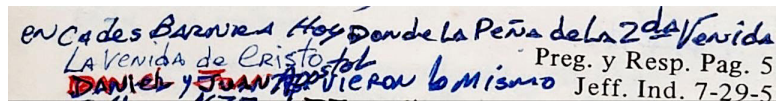 en Cades Barnea Hoy Donde La Peña de La 2da Venida
La Venida de Cristo
Preg. y Resp. Pag. 5
Daniel y Juan Apostol Vieron lo Mismo
Jeff. Ind. 7-29-5